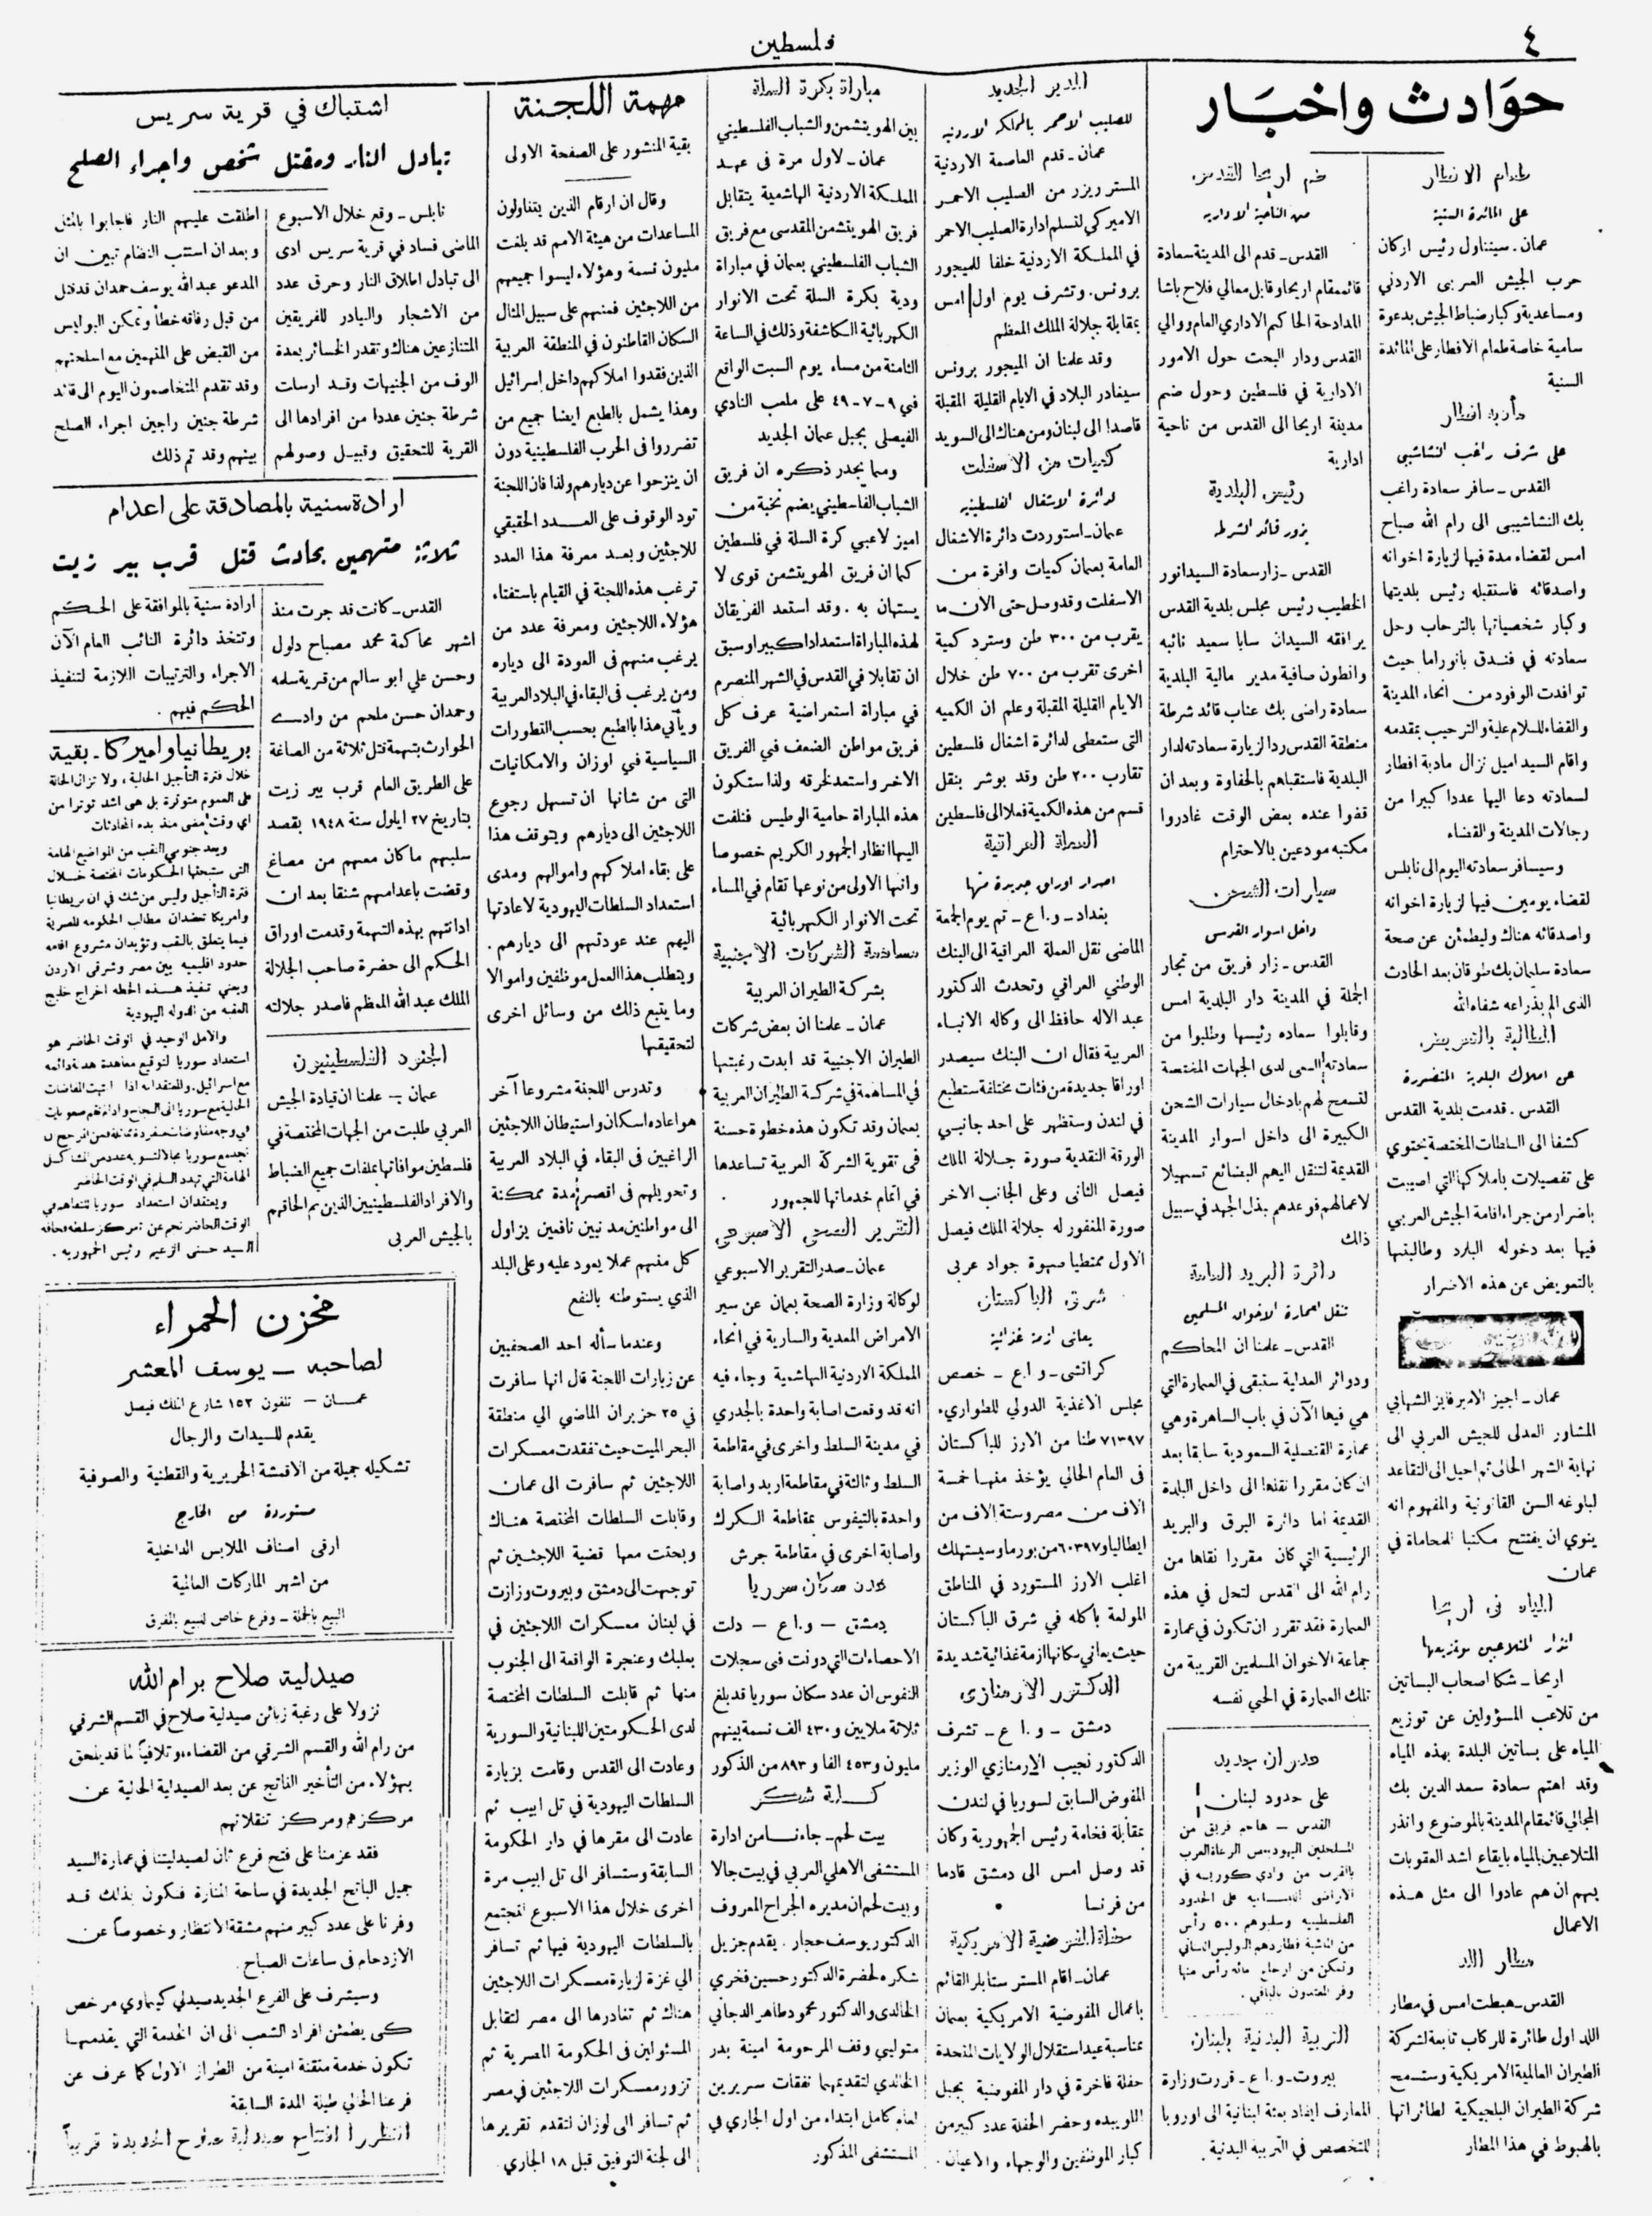 ٤
فلسطين
حوَادث واخبَار
طعام الافطار
على المائدة السنية
عمان ـ سيتناول رئيس اركان
حرب الجيش العربى الاردني
ومساعديه وكبار ضباط الجيش بدعوة
سامية خاصة طعام الافطار على المائدة
السنية
مأدبة افطار
على شرف راغب النشاشيبي
القدس ـ سافر سعادة راغب
بك النشاشيبى الى رام الله صباح
امس لقضاء مدة فيها لزيارة اخوانه
واصدقائه فاستقبله رئيس بلديتها
وكبار شخصياتها بالترحاب وحل
سعادته في فندق بانوراما حيث
توافدت الوفود من انحاء المدينة
والقضاء للسلام عليه والترحيب بمقدمه
واقام السيد اميل نزال مادبة افطار
لسعادته دعا اليها عددا كبيرا من
رجالات المدينة والقضاء
وسيسافر سعادته اليوم الى نابلس
لقضاء يومين فيها لزيارة اخوانه
واصدقائه هناك وليطمئن عن صحة
سعادة سليمان بك طوقان بعد الحادث
الذى الم بذراعه شفاه الله
المطالبة بالتعويض
عن املاك البلدية المتضررة
القدس ـ قدمت بلدية القدس
كشفا الى السلطات المختصة يحتوي
على تفصيلات باملاكها التي اصيبت
باضرار من جراء اقامة الجيش العربي
فيها بعد دخوله البلاد وطالبتها
بالتعويض عن هذه الاضرار
عمان ـ اجيز الامير فايز الشهابي
المشاور العدلى للجيش العربي الى
نهاية الشهر الحالى ثم احيل الى التقاعد
لبلوغه السن القانونية والمفهوم انه
ينوي ان يفتتح مكتبا للمحاماة في
عمان
المياه فى اريحا
انذار المتلاعبين بتوزيعها
اريحا ـ شكا اصحاب البساتين
من تلاعب المسؤولين عن توزيع
المياه على بساتين البلدة بهذه المياه
وقد اهتم سعادة سعد الدين بك
المجالي قائمقام المدينة بالموضوع وانذر
المتلاعبين بالمياه بايقاع اشد العقوبات
بهم ان هم عادوا الى مثل هذه
الاعمال
مطار اللد
القدس ـ هبطت امس في مطار
اللد اول طائرة للركاب تابعة لشركة
الطيران العالمية الامريكية وستسمح
شركة الطيران البلجيكية لطائراتها
بالهبوط في هذا المطار
ضم اريحا للقدس
من الناحية الادارية
القدس ـ قدم الى المدينة سعادة
قائمقام اريحا وقابل معالي فلاح باشا
المدادحة الحاكم الاداري العام ووالي
القدس ودار البحث حول الامور
الادارية في فلسطين وحول ضم
مدينة اريحا الى القدس من ناحية
ادارية
رئيس البلدية
يزور قائد الشرطة
القدس ـ زار سعادة السيد انور
الخطيب رئيس مجلس بلدية القدس
يرافقه السيدان سابا سعيد نائبه
وانطون صافية مدير مالية البلدية
سعادة راضى بك عناب قائد شرطة
منطقة القدس ردا لزيارة سعادته لدار
البلدية فاستقبلهم بالحفاوة وبعد ان
قضوا عنده بعض الوقت غادروا
مكتبه مودعين بالاحترام
سيارات الشحن
داخل اسوار القدس
القدس ـ زار فريق من تجار
الجملة في المدينة دار البلدية امس
وقابلوا سعاده رئيسها وطلبوا من
سعادته السعى لدى الجهات المختصة
لتسمح لهم بادخال سيارات الشحن
الكبيرة الى داخل اسوار المدينة
القديمة لتنقل اليهم البضائع تسهيلا
لاعمالهم فوعدهم بذل الجهد في سبيل
ذلك
دائرة البريد العامة
تنقل لعمارة الاخوان المسلمين
القدس ـ علمنا ان المحاكم
ودوائر العدلية ستبقى في العمارة التي
هي فيها الآن في باب الساهرة وهي
عمارة القنصلية السعودية سابقا بعد
ان كان مقررا نقلها الى داخل البلدة
القديمة اما دائرة البرق والبريد
الرئيسية التي كان مقررا نقلها من
رام الله الى القدس لتحل في هذه
العمارة فقد تقرر ان تكون في عمارة
جماعة الاخوان المسلمين القريبة من
تلك العمارة في الحي نفسه
عدوان جديد
على حدود لبنان
القدس ـ هاجم فريق من
المسلحين اليهود بعض الرعاة العرب
بالقرب من وادي كوربه في
الاراضى اللبنانيه على الحدود
الفلسطينيه وسلبوهم ٥٠٠ رأس
من الماشية فطاردهم البوليس اللبناني
وتمكن من ارجاع مائه رأس منها
وفر المعتدون بالباقي .
التربية البدنية بلبنان
بيروت ـ و.ا ع ـ قررت وزارة
المعارف ايفاد بعثة لبنانية الى اوروبا
للتخصص في التربية البدنية .
المدير الجديد
للصليب الاحمر بالمملكة الاردنية
عمان ـ قدم العاصمة الاردنية
المستر ريزر من الصليب الاحمر
الاميركي لتسلم ادارة الصليب الاحمر
في المملكة الاردنية خلفا للميجور
برونس . وتشرف يوم اول امس
بمقابلة جلالة الملك المعظم
وقد علمنا ان الميجور برونس
سيغادر البلاد في الايام القليلة المقبلة
قاصدا الى لبنان ومن هناك الى السويد
كميات من الاسفلت
لدائرة الاشغال الفلسطينيه
عمان ـ استوردت دائرة الاشغال
العامة بعمان كميات وافرة من
الاسفلت وقد وصل حتى الان ما
يقرب من ٣٠٠ طن وسترد كمية
اخرى تقرب من ٧٠٠ طن خلال
الايام القليلة المقبلة وعلم ان الكميه
التى ستعطى لدائرة اشغال فلسطين
تقارب ٢٠٠ طن وقد بوشر بنقل
قسم من هذه الكمية فعلا الى فلسطين
العملة العراقية
اصدار اوراق جديدة منها
بغداد ـ و.ا ع ـ تم يوم الجمعة
الماضى نقل العملة العراقية الى البنك
الوطني العراقي وتحدث الدكتور
عبد الاله حافظ الى وكاله الانباء
العربية فقال ان البنك سيصدر
اوراقا جديدة من فئات مختلفة ستطبع
في لندن وستظهر على احد جانبي
الورقة النقدية صورة جلالة الملك
فيصل الثانى وعلى الجانب الاخر
صورة المغفور له جلالة الملك فيصل
الاول ممتطيا صهوة جواد عربى
شرق الباكستان
يعانى ازمة غذائية
كراتشى ـ و.ا ع ـ خصص
مجلس الاغذية الدولي للطواريء
٧١٣٩٧ طنا من الارز للباكستان
فى العام الحالي يؤخذ منها خمسة
الاف من مصر وستة الاف من
ايطاليا و٦٠٣٩٧ من بورما وسيستهلك
اغلب الارز المستورد في المناطق
المولعة باكله في شرق الباكستان
حيث يعاني سكانها ازمة غذائية شديدة
الدكتور الارمنازى
دمشق ـ و.ا ع ـ تشرف
الدكتور نجيب الارمنازي الوزير
المفوض السابق لسوريا في لندن
بمقابلة فخامة رئيس الجمهورية وكان
قد وصل امس الى دمشق قادما
من فرنسا
حفلة المفوضية الامريكية
عمان ـ اقام المستر ستابلر القائم
باعمال المفوضية الامريكية بعمان
بمناسبة عيد استقلال الولايات المتحدة
حفلة فاخرة في دار المفوضية بجبل
اللويبده وحضر الحفلة عدد كبير من
كبار الموظفين والوجهاء والاعيان .
مباراة بكرة السلة
بين الهويتشمن والشباب الفلسطيني
عمان ـ لاول مرة فى عهد
المملكة الاردنية الهاشمية يتقابل
فريق الهويتشمن المقدسى مع فريق
الشباب الفلسطيني بعمان في مباراة
ودية بكرة السلة تحت الانوار
الكهربائية الكاشفة وذلك في الساعة
الثامنة من مساء يوم السبت الواقع
في ٩ - ٧ - ٤٩ على ملعب النادي
الفيصلى بجبل عمان الجديد
ومما يجدر ذكره ان فريق
الشباب الفلسطيني يضم نخبة من
اميز لاعبي كرة السلة في فلسطين
كما ان فريق الهويتشمن قوى لا
يستهان به . وقد استعد الفريقان
لهذه المباراة استعدادا كبيرا وسبق
ان تقابلا في القدس في الشهر المنصرم
في مباراة استعراضية عرف كل
فريق مواطن الضعف في الفريق
الاخر واستعد لخرقه ولذا ستكون
هذه المباراة حامية الوطيس فنلفت
اليها انظار الجمهور الكريم خصوصا
وانها الاولى من نوعها تقام في المساء
تحت الانوار الكهربائية
مساهمة الشركات الاجنبية
بشركة الطيران العربية
عمان ـ علمنا ان بعض شركات
الطيران الاجنبية قد ابدت رغبتها
في المساهمة في شركة الطيران العربية
بعمان وقد تكون هذه خطوة حسنة
فى تقوية الشركة العربية تساعدها
في اتمام خدماتها للجمهور
التقرير الصحى الاسبوعى
عمان ـ صدر التقرير الاسبوعي
لوكالة وزارة الصحة بعمان عن سير
الامراض المعدية والسارية في انحاء
المملكة الاردنية الهاشمية وجاء فيه
انه قد وقعت اصابة واحدة بالجدري
في مدينة السلط واخرى في مقاطعة
السلط وثالثة في مقاطعة اربد واصابة
واحدة بالتيفوس بمقاطعة الكرك
واصابة اخرى في مقاطعة جرش
عدد سكان سوريا
دمشق ـ و.ا ع ـ دلت
الاحصاءات التي دونت فى سجلات
النفوس ان عدد سكان سوريا قد بلغ
ثلاثة ملايين و٤٣٠ الف نسمة بينهم
مليون و٤٥٣ الفا و٨٩٣ من الذكور
كلمة شكر
بيت لحم ـ جاءنا من ادارة
المستشفى الاهلي العربي في بيت جالا
وبيت لحم ان مديره الجراح المعروف
الدكتور يوسف حجار . يقدم جزيل
شكره لحضرة الدكتور حسين فخري
الخالدى والدكتور محمود طاهر الدجاني
متوليي وقف المرحومة امينة بدر
الخالدي لتقديمهما نفقات سريرين
لعام كامل ابتداء من اول الجاري في
المستشفى المذكور
مهمة اللجنة
بقية المنشور على الصفحة الاولى
وقال ان ارقام الذين يتناولون
المساعدات من هيئة الامم قد بلغت
مليون نسمة وهؤلاء ليسوا جميعهم
من اللاجئين فمنهم على سبيل المثال
السكان القاطنون في المنطقة العربية
الذين فقدوا املاكهم داخل إسرائيل
وهذا يشمل بالطبع ايضا جميع من
تضرروا فى الحرب الفلسطينية دون
ان ينزحوا عن ديارهم ولذا فان اللجنة
تود الوقوف على العدد الحقيقي
للاجئين وبعد معرفة هذا العدد
ترغب هذه اللجنة في القيام باستفتاء
هؤلاء اللاجئين ومعرفة عدد من
يرغب منهم في العودة الى دياره
ومن يرغب فى البقاء في البلاد العربية
ويأتي هذا بالطبع بحسب التطورات
السياسية في لوزان والامكانيات
التى من شانها ان تسهل رجوع
اللاجئين الى ديارهم ويتوقف هذا
على بقاء املاكهم واموالهم ومدى
استعداد السلطات اليهودية لاعادتها
اليهم عند عودتهم الى ديارهم .
ويتطلب هذا العمل موظفين واموالا
وما يتبع ذلك من وسائل اخرى
لتحقيقها
وتدرس اللجنة مشروعا آخر
هو اعاده اسكان واستيطان اللاجئين
الراغبين فى البقاء في البلاد العربية
وتحويلهم فى اقصر مدة ممكنة
الى مواطنين مدنيين نافعين يزاول
كل منهم عملا يعود عليه وعلى البلد
الذي يستوطنه بالنفع
وعندما سأله احد الصحفيين
عن زيارات اللجنة قال انها سافرت
في ٢٥ حزيران الماضي الى منطقة
البحر الميت حيث تفقدت معسكرات
اللاجئين ثم سافرت الى عمان
وقابلت السلطات المختصة هناك
وبحثت معها قضية اللاجئين ثم
توجهت الى دمشق وبيروت وزارت
في لبنان معسكرات اللاجئين في
بعلبك وعنجرة الواقعة الى الجنوب
منها ثم قابلت السلطات المختصة
لدى الحكومتين اللبنانية والسورية
وعادت الى القدس وقامت بزيارة
السلطات اليهودية في تل ابيب ثم
عادت الى مقرها في دار الحكومة
السابقة وستسافر الى تل ابيب مرة
اخرى خلال هذا الاسبوع لتجتمع
بالسلطات اليهودية فيها ثم تسافر
الي غزة لزيارة معسكرات اللاجئين
هناك ثم تغادرها الى مصر لتقابل
المسئولين فى الحكومة المصرية ثم
تزور معسكرات اللاجئين في مصر
ثم تسافر الى لوزان لتقدم تقريرها
الى لجنة التوفيق قبل ١٨ الجاري .
اشتباك في قرية سريس
تبادل النار ومقتل شخص واجراء الصلح
نابلس ـ وقع خلال الاسبوع
الماضى فساد في قرية سريس ادى
الى تبادل اطلاق النار وحرق عدد
من الاشجار والبيادر للفريقين
المتنازعين هناك وتقدر الخسائر بعدة
الوف من الجنيهات وقد ارسلت
شرطة جنين عددا من افرادها الى
القرية للتحقيق وقبيل وصولهم
اطلقت عليهم النار فاجابوا بالمثل
وبعد ان استتب النظام تبين ان
المدعو عبدالله يوسف حمدان قد قتل
من قبل رفاقه خطأ وتمكن البوليس
من القبض على المتهمين مع اسلحتهم
وقد تقدم المتخاصمون اليوم الى قائد
شرطة جنين راجين اجراء الصلح
بينهم وقد تم ذلك
ارادة سنية بالمصادقة على اعدام
ثلاثة متهمين بحادث قتل قرب بير زيت
القدس ـ كانت قد جرت منذ
اشهر محاكمة محمد مصباح دلول
وحسن علي ابو سالم من قرية سلمه
وحمدان حسن ملحم من وادي
الحوارث بتهمة قتل ثلاثة من الصاغة
على الطريق العام قرب بير زيت
بتاريخ ٢٧ ايلول سنة ١٩٤٨ بقصد
سلبهم ماكان معهم من مصاغ
وقضت باعدامهم شنقا بعد ان
ادانتهم بهذه التهمة وقدمت اوراق
الحكم الى حضرة صاحب الجلالة
الملك عبد الله المعظم فاصدر جلالته
ارادة سنية بالموافقة على الحكم
وتتخذ دائرة النائب العام الآن
الاجراء والترتيبات اللازمة لتنفيذ
الحكم فيهم .
الجنود الفلسطينيون
عمان ـ علمنا ان قيادة الجيش
العربي طلبت من الجهات المختصة في
فلسطين موافاتها بملفات جميع الضباط
والافراد الفلسطينيين الذين تم الحاقهم
بالجيش العربى
بريطانيا واميركا ـ بقية
خلال فترة التأجيل الحالية ، ولا تزال الحالة
على العموم متوترة بل هى اشد توترا من
اي وقت مضى منذ بدء المحادثات
ويعد جنوبي النقب من المواضيع الهامة
التى ستبحثها الحكومات المختصة خلال
فترة التأجيل وليس من شك في ان بريطانيا
وامريكا تعضدان مطالب الحكومه المصرية
فيما يتعلق بالنقب وتؤيدان مشروع اقامه
حدود اقليميه بين مصر وشرقى الاردن
ويعني تنفيذ هذه الخطه اخراج خليج
العقبه من الدوله اليهودية
والامل الوحيد في الوقت الحاضر هو
استعداد سوريا لتوقيع معاهدة هدنة دائمه
السيد حسنى الزعيم رئيس الجمهوريه .
مخزن الحمراء
لصاحبه ـ يوسف المعشر
عمان ـ تلفون ١٥٣ شارع الملك فيصل
يقدم للسيدات والرجال
تشكيله جميلة من الاقمشة الحريرية والقطنية والصوفية
مستوردة من الخارج
ارقى اصناف الملابس الداخلية
من اشهر الماركات العالمية
البيع بالجملة ـ وفرع خاص للبيع بالمفرق
صيدلية صلاح برام الله
نزولا على رغبة زبائن صيدلية صلاح في القسم الشرقي
من رام الله والقسم الشرقي من القضاء، وتلافياً لما قد يلحق
بهؤلاء من التأخير الناتج عن بعد الصيدلية الحالية عن
مركزهم ومركز تنقلاتهم
فقد عزمنا على فتح فرع ثان لصيدليتنا في عمارة السيد
جميل الباتح الجديدة في ساحة المنارة فنكون بذلك قد
وفرنا على عدد كبير منهم مشقة الانتظار وخصوصاً عن
الازدحام فى ساعات الصباح
وسيشرف على الفرع الجديد صيدلي كيماوي مرخص
كى يطمئن افراد الشعب الى ان الخدمة التي يقدمها
تكون خدمة متقنة امينة من الطراز الاول كما عرف عن
فرعنا الحالي طيلة المدة السابقة
انتظروا افتتاح صيدلية صلاح الجديدة قريباً